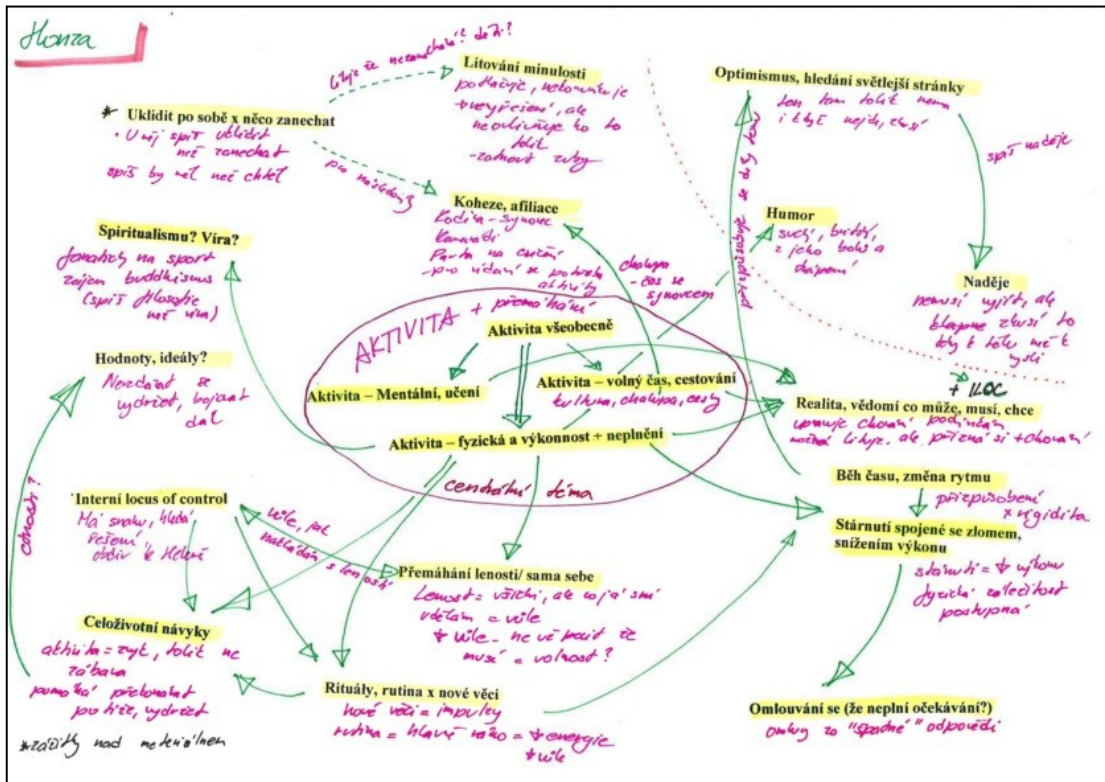 Honza
lituje že nezanechává? děti?
* Uklidit po sobě x něco zanechat
• U něj spíš uklidit
než zanechat
spíš by měl než chtěl
pro následníky?
Litování minulosti
potlačuje,
vyřešení, ale
neovlivňuje ho to
tolik
- zatnout zuby
Optimismus, hledání světlejší stránky
ten tam tolik nemá
i když nejde, zkusí
spíš naděje
Koheze, afiliace
Rodina - synovec
Kamarádi
Parta na cvičení
- pro udání se potřeba
aktivity
chalupa
- čas se
synovcem
Humor
suchý, britský,
z jeho boků a
trápení
přizpůsobuje se díky tomu
Naděje
nemusí vyjít, ale
zkusí to
Spiritualismu? Víra?
fanatický na sport
zájem buddhismus
(spíš filosofie
než víra)
Hodnoty, ideály?
Nevzdávat se
vydržet, bojovat
dál
ctnosti?
AKTIVITA + přemáhání
Aktivita všeobecně
Aktivita – Mentální, učení
Aktivita – volný čas, cestování
kultura, chalupa, cesty
Aktivita – fyzická a výkonnost + neplnění
centrální téma
+ ILOC
Realita, vědomí co může, musí, chce
upravuje chování podmínkám
možná lituje, ale přizná si + chování
Běh času, změna rytmu
přizpůsobení
x rigidita
Stárnutí spojené se zlomem,
snížením výkonu
stárnutí = ↓ výkonu
fyzická záležitost
postupná
Interní locus of control
Má snahu, hledá
řešení
obdiv k Heleně
vůle, jak
nakládám s leností
Přemáhání lenosti/ sama sebe
Lenost = všichni, ale co já smí
udělám = vůle
musí = volnost?
Celoživotní návyky
aktivita = zvyk, tolik ne
zábava
pomáhá překonávat
potíže, vydržet
* zážitky nad materiálnem
Rituály, rutina x nové věci
nové věci = impulzy
rutina = hlavně ráno = ↓ energie
↓ vůle
Omlouvání se (že neplní očekávání?)
omluvy za "špatné" odpovědi